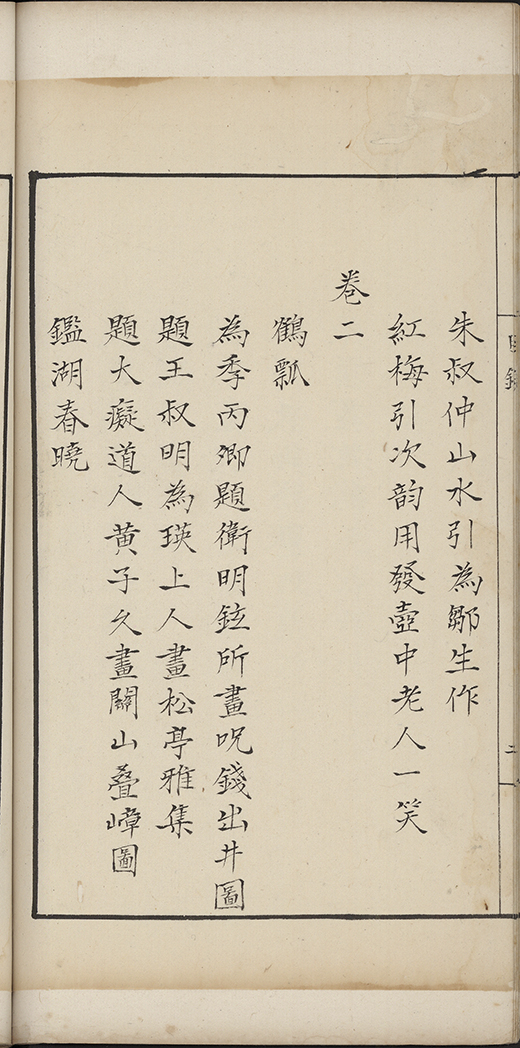 目錄
二
朱叔仲山水引為鄒生作
紅梅引次韵用發壺中老人一笑
卷二
鶴瓢
為季丙卿題衛明鉉所畫呪錢出井圖
題王叔明為瑛上人畫松亭雅集
題大癡道人黃子久畫關山疊嶂圖
鑑湖春曉